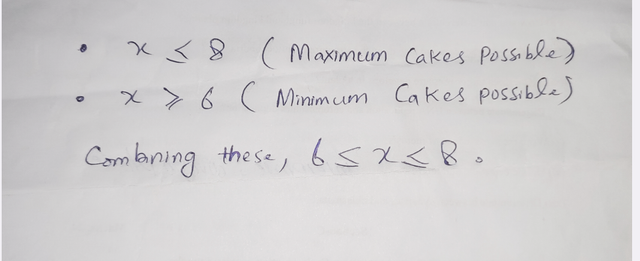 • x ≤ 8 ( Maximum Cakes Possible)
• x ≥ 6 ( Minimum Cakes possible)
Combining these, 6 ≤ x ≤ 8.